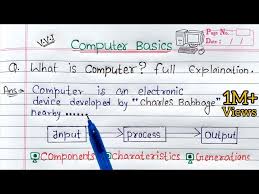 V.V.I
Page No.:
Date: / /
Computer Basics
Q. What is Computer? full Explaination.
Ans→ Computer is an electronic
device developed by "Charles Babbage"
nearby ......
1M+
Views
Input → process → Output
Components Charateristics Generations